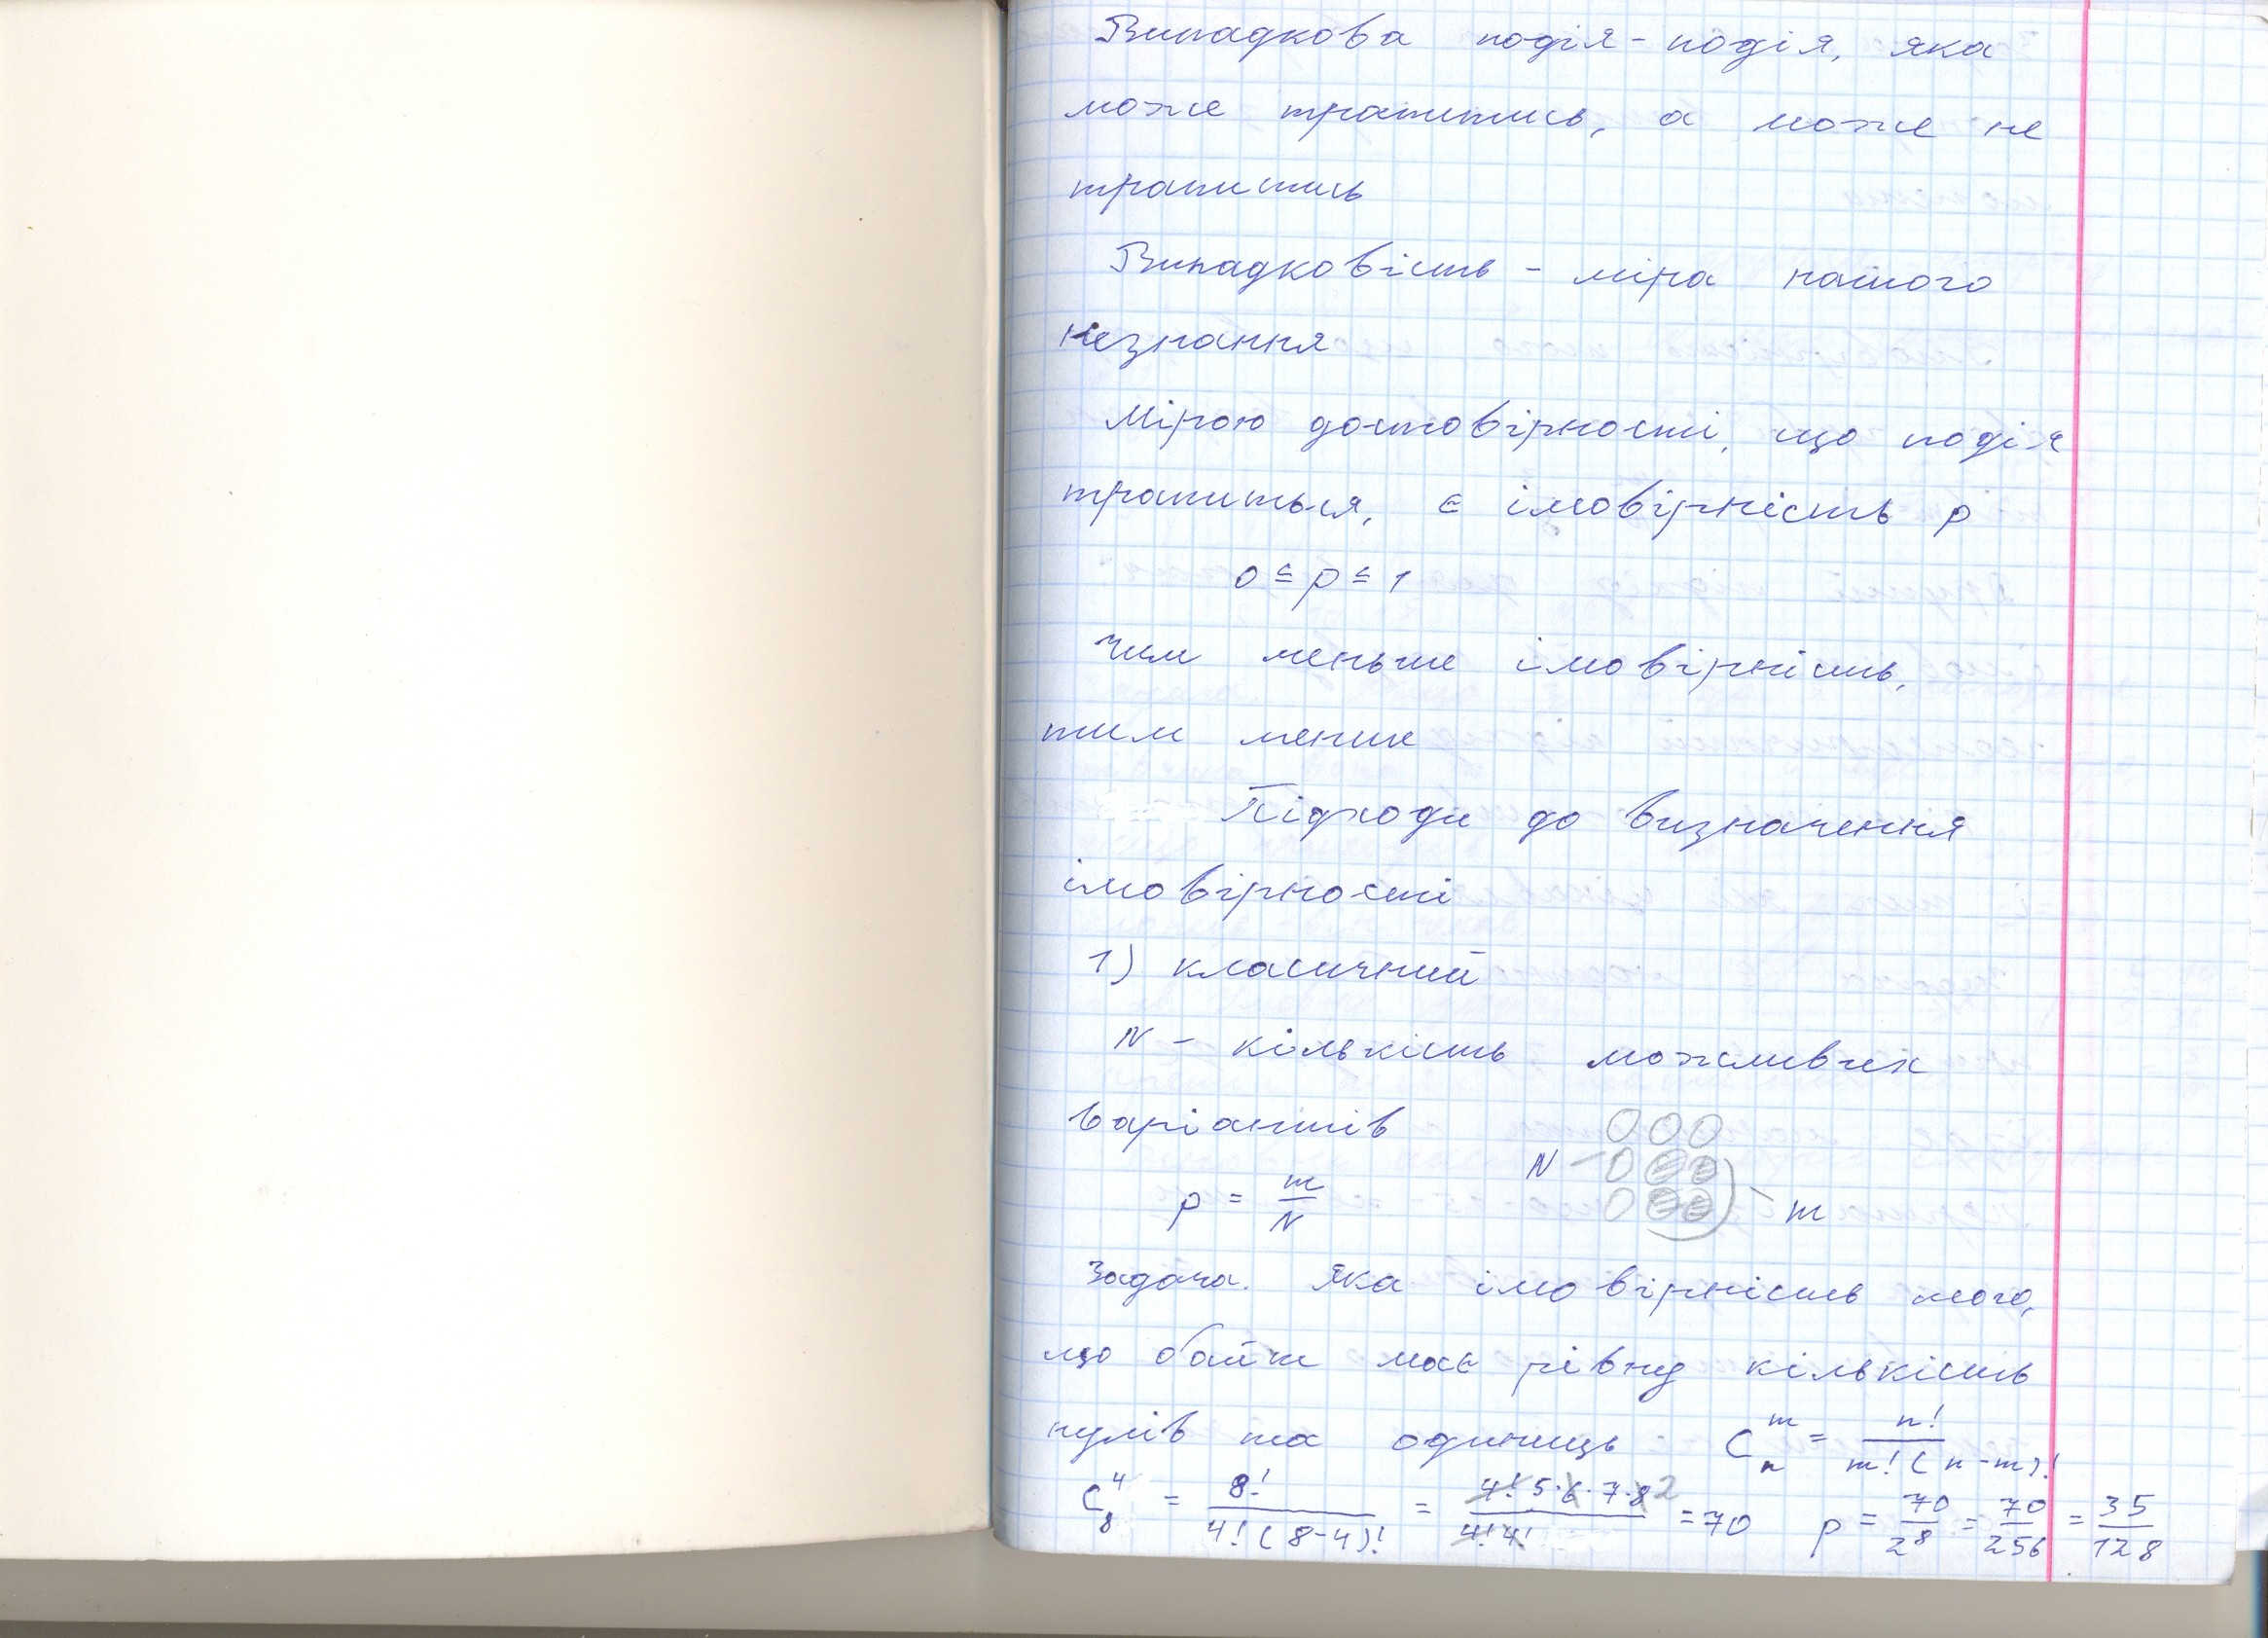 Випадкова подія - подія, яка
може трапитись, а може не
трапитись
Випадковість - міра нашого
незнання
Мірою достовірності, що подія
трапиться, є імовірність p
0 ≤ p ≤ 1
Чим меньше імовірність,
тим менше
Підходи до визначення
імовірності
1) класичний
N - кількість можливих
варіантів
N
p = m/N
m
Задача. Яка імовірність того,
що байт має рівну кількість
нулів та одиниць C_n^m = n!/(m!(n-m)!)
C_8^4 = 8!/(4!(8-4)!) = (4!·5·6·7·8 2)/(4!4!) = 70 p = 70/2^8 = 70/256 = 35/128